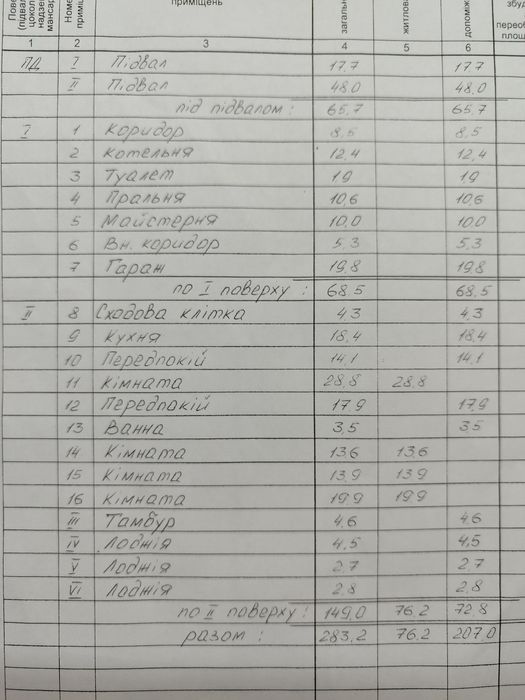 Пове приміщень збуд
(підвал Номе загальн житлова допоміжн
цоколь приміщ перео
надзем площ
мансар
1 2 3 4 5 6
ПД I Підвал 17,7 17,7
II Підвал 48,0 48,0
під підвалом: 65,7 65,7
I 1 Коридор 8,5 8,5
2 Котельня 12,4 12,4
3 Туалет 1,9 1,9
4 Пральня 10,6 10,6
5 Майстерня 10,0 10,0
6 Вн. коридор 5,3 5,3
7 Гараж 19,8 19,8
по I поверху: 68,5 68,5
II 8 Сходова клітка 4,3 4,3
9 Кухня 18,4 18,4
10 Передпокій 14,1 14,1
11 Кімната 28,8 28,8
12 Передпокій 17,9 17,9
13 Ванна 3,5 3,5
14 Кімната 13,6 13,6
15 Кімната 13,9 13,9
16 Кімната 19,9 19,9
III Тамбур 4,6 4,6
IV Лоджія 4,5 4,5
V Лоджія 2,7 2,7
VI Лоджія 2,8 2,8
по II поверху: 149,0 76,2 72,8
разом: 283,2 76,2 207,0